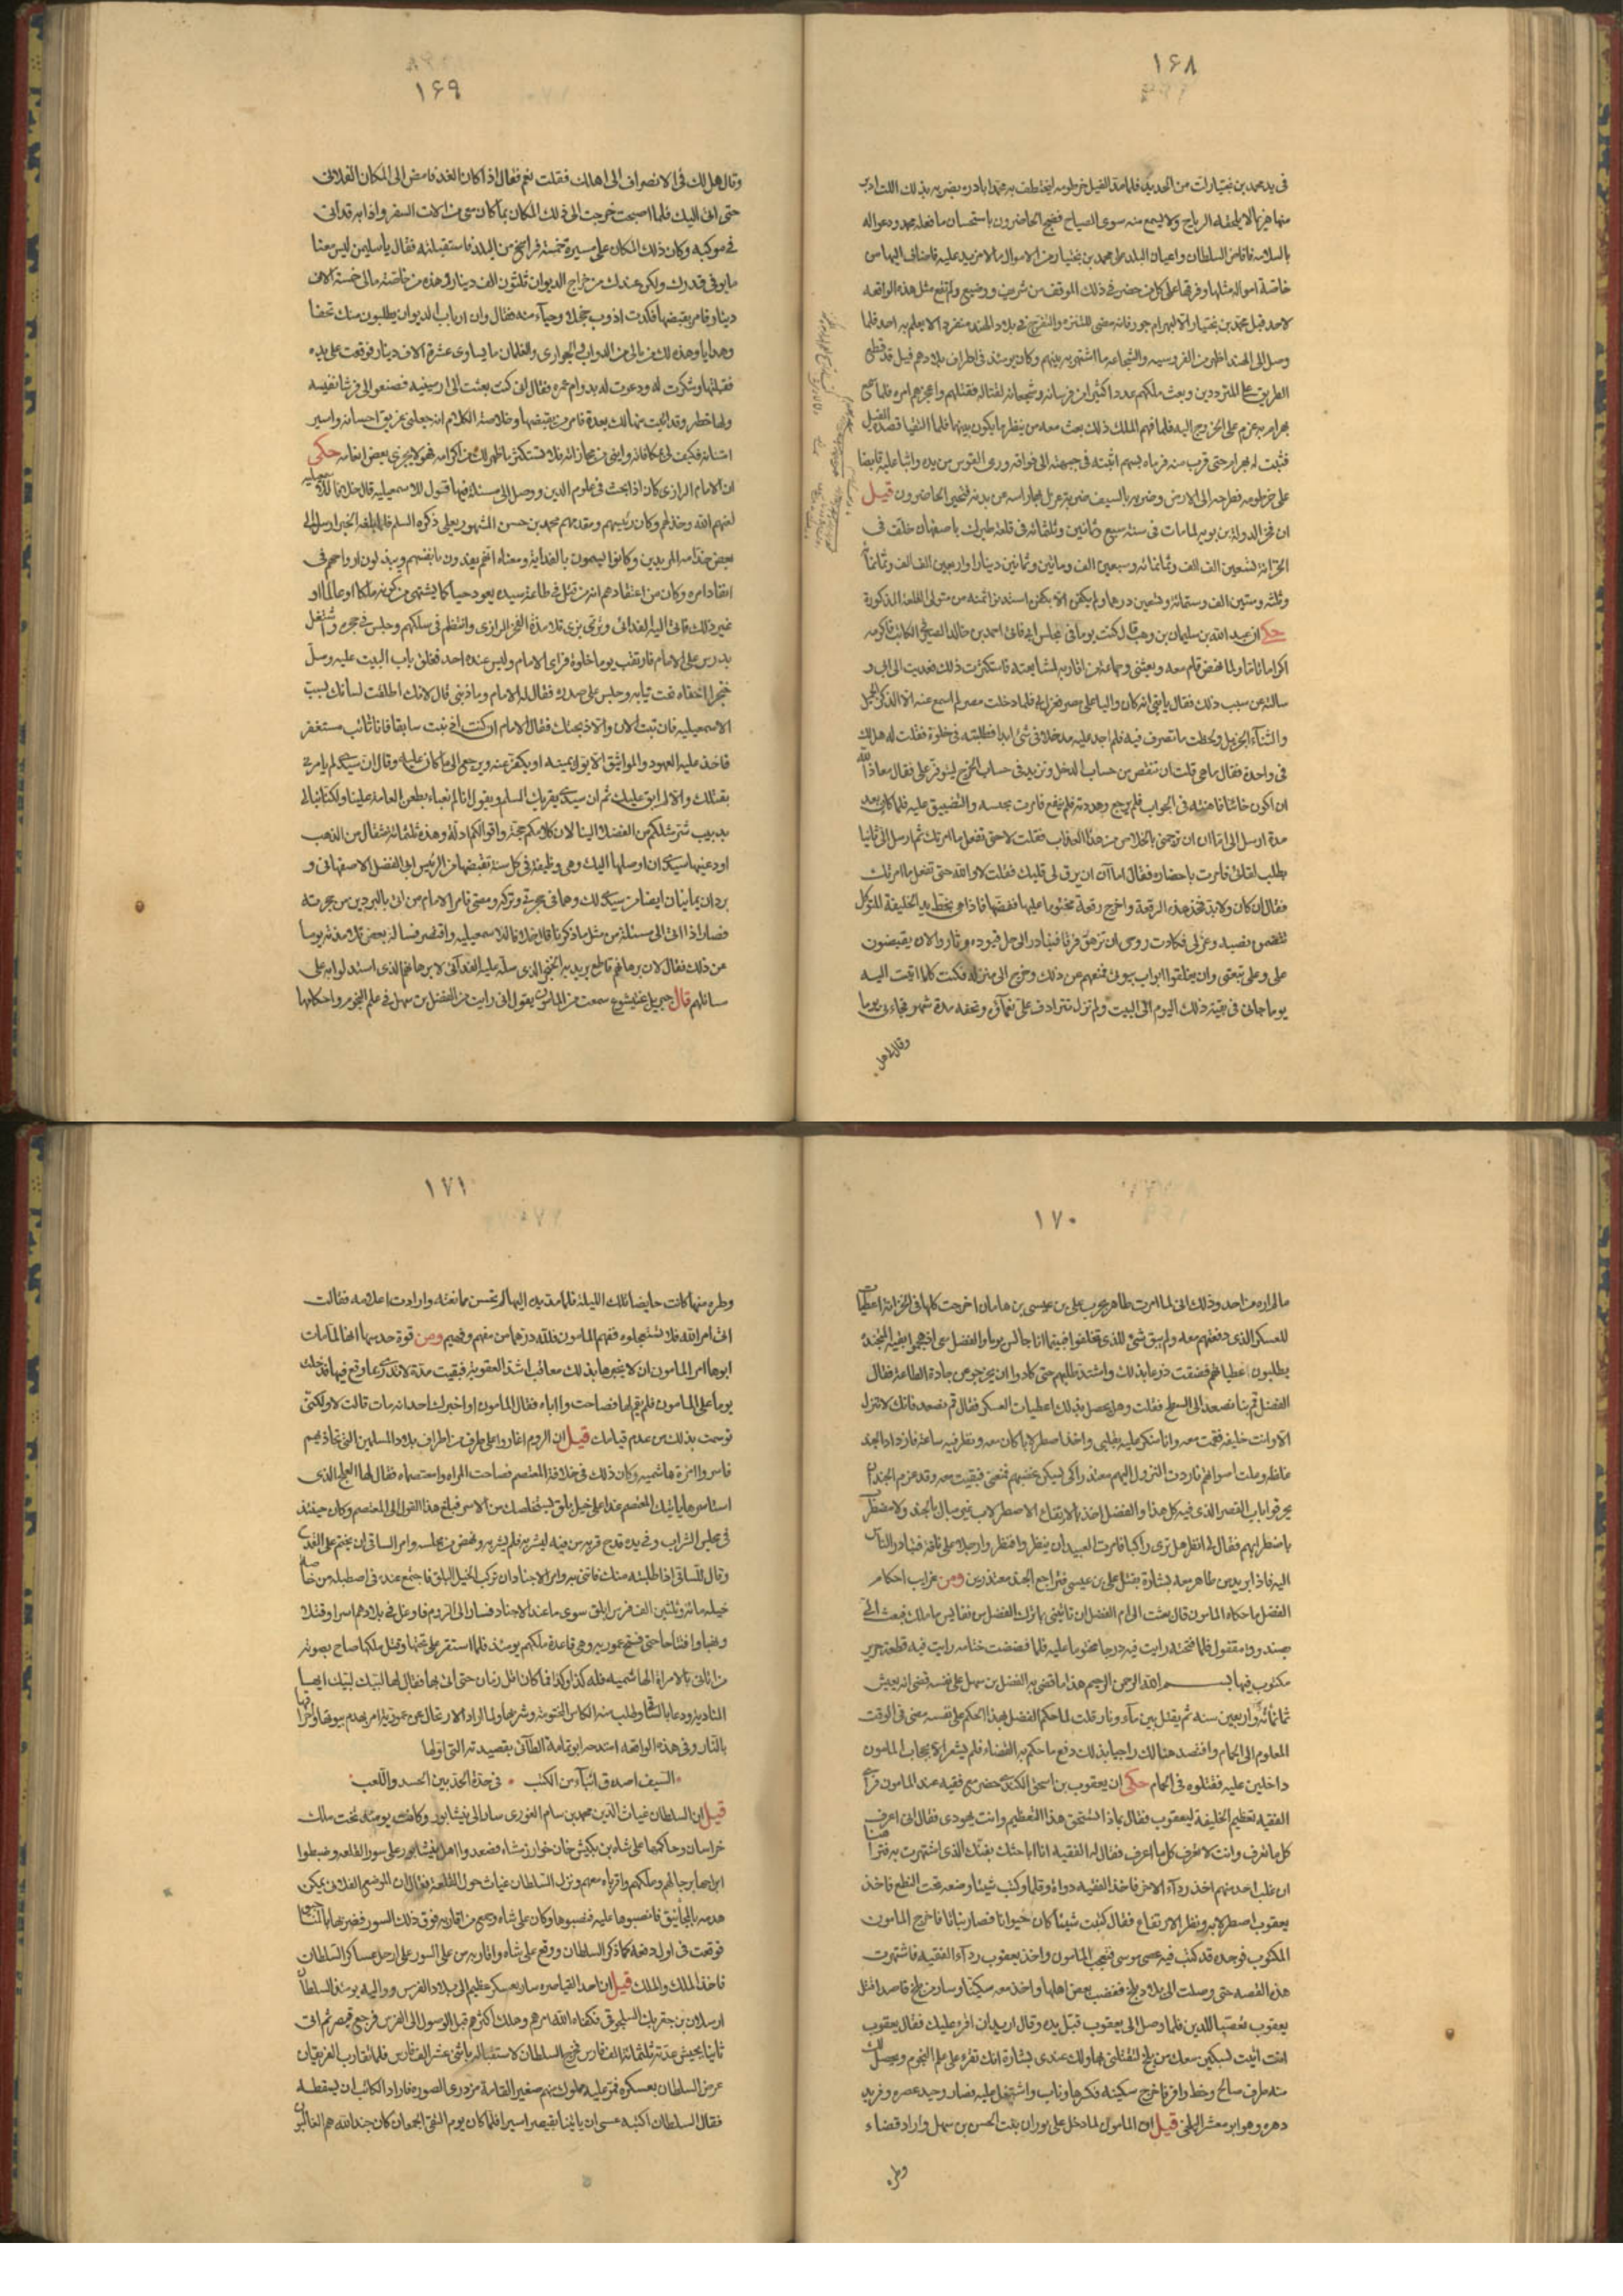 ١۶٨
فى يد محمد بن بختيار من الحديد فلما مد الفيل خرطومه ليختطف به محمدا بادره بضربه بذلك اللت ادبر
منها هزيما لا يلحقه الرياح ولا يسمع منه سوى الصياح فضج الحاضرون باستحسان ما فعله محمد ودعوا له
بالسلامه فافاض السلطان واعيان البلد على محمد بن بختيار من الاموال ما لا مزيد عليه فاضاف اليها من
خاصة امواله مثلها وفرقها على كل من حضر فى ذلك الموقف من شريف ووضيع ولم تقع مثل هذه الواقعه
لاحد قبل محمد بن بختيار الا لبهرام جور فانه مضى للتنزه والتفرج فى بلاد الهند منفردا لا يعلم به احد فلما
وصل الى الهند اظهر من الفروسيه والشجاعه ما اشتهر به بينهم وكان يومئذ فى اطراف بلادهم فيل قد قطع
الطريق على المترددين وبعث ملكهم عددا كثيرا من فرسانه وشجعانه لقتاله فقتلهم واعجزهم امره فلما سمع
بهرام به عزم على الخروج اليه فلما فهم الملك ذلك بعث معه من ينظر ما يكون بينهما فلما التقيا قصده الفيل
فثبت له بهرام حتى قرب منه فرماه بسهم اثبته فى جبهته الى فواقه ورمى القوس من يده واثبا عليه قابضا
على خرطومه فطرحه الى الارض وضربه بالسيف ضربة عزل بها راسه عن بدنه فتحير الحاضرون قيل
ان فخر الدولة بن بويه لما مات فى سنة سبع وثمانين وثلثمائه فى قلعة طبرك باصفهان خلف فى
الخزانة تسعين الف الف وثمانمائه وسبعين الف ومائتين وثمانين دينارا واربعين الف الف وثمانمأة
وثلثه وستين الف وستمائة وتسعين درهما ولم يكفن الا بكفن استدين ثمنه من متولى القلعة المذكورة
حكى ان عبيد الله بن سليمان بن وهب قال كنت يوما فى مجلس ابى فاتى احمد بن خالد الصيرفى الكاتب فاكرمه
اكراما تاما ولما نهض قام معه وبعثنى وجماعة من اقاربه لمشايعته فاستكثرت ذلك فعدت الى ابى و
سالته عن سبب ذلك فقال يا بنى انه كان واليا على مصر فعزل فلما دخلت مصر لم اسمع عنه الا الذكر الجميل
والثناء الجزيل ولاحظت ما تصرف فيه فلم اجد عليه مدخلا فى شئ ابدا فطلبته فى خلوة فقلت له هل لك
فى واحدة فقال ما هى قلت ان تنقص من حساب الدخل وتزيد فى حساب الخرج ليتوفر على فقال معاذ الله
ان اكون خائنا فاهنته فى الجواب فلم يرجع وهددته فلم ينفع فامرت بحبسه والتضييق عليه فلما كان بعد
مدة ارسل الى اما ان ان ترحمنى بالخلاص من هذا العذاب فقلت لا حتى تفعل ما امرتك ثم ارسل الى ثانيا
يطلب لقائى فامرت باحضاره فقال اما آن ان يرق لى قلبك فقلت لا والله حتى تفعل ما امرتك
فقال ان كان ولا بد فخذ هذه الرقعة واخرج رقعة مختوما عليها ففضها فاذا هى بخط يد الخليفة المتوكل
تتضمن نصبه وعزلى فكادت روحى ان تزهق فرقا فتبادر الى حل قيوده وثار والان يقبضون
على وعلى تبعتى وان يغلقوا ابواب بيوتى فمنعهم عن ذلك وخرج الى منزله فكنت كلما اتيت اليه
يوما جائنى فى بقية ذلك اليوم الى البيت ولم تزل تترادف على نعماؤه وتحفه مدة شهر فجاءنى يوما
وقال هل
١۶٩
وقال هل لك فى الانصراف الى اهلك فقلت نعم فقال اذا كان الغد فامض الى المكان الفلانى
حتى اتى اليك فلما اصبحت خرجت الى ذلك المكان بما كان معى من الات السفر واذا به قد اتى
فى موكبه وكان ذلك المكان على مسيرة خمسة فراسخ من البلد فاستقبلته فقال يا سليمن ليس معنا
ما يوفى قدرك ولكن عندك من خراج الديوان ثلثون الف دينار وهذه من خاصة مالى خمسة الاف
دينار وامر بقبضها فكدت اذوب خجلا وحياء منه فقال وان ارباب الديوان يطلبون منك تحفا
وهدايا وهذه لك من مالى من الدواب والجوارى والغلمان ما يساوى عشرة الاف دينار فوقعت على يده
فقبلتها وشكرت له ودعوت له بدوام عمره فقال انى كنت بعثت الى ارمينيه فصنعوا لى فرشا نفيسه
ولها خطر وقد اتيت منها لك بعدة فامر من يقبضها وخلاصة الكلام انه جعلنى غريق احسانه واسير
امتنانه فكيف لى بمكافاته وابنى من مجازاته فلا تستكثر ما ظهر لك من اكرامه فهو لا يجزى بعض انعامه حكى
ان الامام الرازى كان اذا بحث فى علوم الدين ووصل الى مسئلة فيها قول للاسمعيليه قال خلافا للاسمعيليه
لعنهم الله وخذلهم وكان رئيسهم ومقدمهم محمد بن حسن المشهور بعلى ذكره السلم فلما بلغه الخبر ارسل الى
بعض خدامه المريدين وكانوا يسمون بالفدائية ومعناه انهم يفدون بانفسهم ويبذلون ارواحهم فى
انفاذ امره وكان من اعتقادهم ان من قتل فى طاعة سيده يعود حيا كما يشتهى من كونه ملكا او عالما او
غير ذلك فاتى اليه الفدائى وتزيى بزى تلامذة الفخر الرازى وانتظم فى سلكهم وجلس فى حجره واشتغل
بدرس على الامام فارتقب يوما خلوة فراى الامام وليس عنده احد فغلق باب البيت عليه وسل
خنجرا اخفاه تحت ثيابه وجلس على صدره فقال له الامام وما ذنبى قال لانك اطلقت لسانك بسب
الاسمعيليه فان تبت الان والا ذبحتك فقال الامام ان كنت اذنبت سابقا فانا تائب مستغفر
فاخذ عليه العهود والمواثيق الا يؤل يمينه او يكفر عنه ويرجع الى ما كان عليه وقال ان سيدى لم يامرنى
بقتلك والا لم ابق عليك ثم ان سيدى يقريك السلم ويقول انا لم نعباء بطعن العامة علينا ولكننا نبالى
بدبيب شر مثلكم من الفضلا الينا لان كلامكم حجة واقوالكم ادلة وهذه ثلثمائة مثقال من الذهب
اودعنيها سيدى ان اوصلها اليك وهى وظيفة فى كل سنة تقبضها من الرئيس ابى الفضل الاصفهانى و
بردان يمانيان ايضا من سيدى لك وهما فى حجرتى وتركه ومضى فامر الامام من اتى بالبردين من حجرته
فصار اذا اتى الى مسئلة من مثل ما ذكرنا قال خلافا للاسمعيليه واقتصر فساله بعض تلامذته يوما
عن ذلك فقال لان برهانهم قاطع يريد به الخنجر الذى سله عليه الفدائى لا برهانهم الذى استدلوا به على
مسائلهم قال جبريل بن بختيشوع سمعت من المامون يقول انى رايت من الفضل بن سهل فى علم النجوم واحكامها
١٧٠
ما لم اره من احد وذلك انى لما امرت طاهر بحرب على بن عيسى بن هامان اخرجت كلما فى الخزانة اعطيات
للعسكر الذى دفعتهم معه ولم يبق شئ للذى تخلفوا فبينما انا جالس يوما والفضل معى اذ هجم بقية الجند
يطلبون اعطياتهم فضقت ذرعا بذلك واشتد طلبهم حتى كادوا ان يخرجوا عن جادة الطاعة فقال
الفضل قم بنا نصعد الى السطح فقلت وهل يحصل بذلك اعطيات العسكر فقال قم نصعد فانك لا تنزل
الا وانت خليفه فقمت معه وانا منكر عليه بقلبى واخذ اصطرلابا كان معه ونظر فيه ساعة فازداد الجند
غلظه وعلت اصواتهم فاردت النزول اليهم معتذرا كى يسكن غضبهم فمنعنى فبقيت معه وقد عزم الجند ان
يحرقوا باب القصر الذى فيه كل هذا والفضل اخذ بالارتفاع الاصطرلاب غير مبال بالجند ولا مضطرب
باضطرابهم فقال لى انظر هل ترى راكبا فامرت العبيد ان ينظروا فنظروا رجلا على ناقة فتبادر الناس
اليه فاذا بريد من طاهر معه بشارة بقتل على بن عيسى فتراجع الجند معتذرين ومن غرايب احكام
الفضل ما حكاه المامون قال بعثت الى ام الفضل ان تاتينى بما ترك الفضل من نفايس ما ملك فبعث الى
صندوقا مقفول فلما فتحته رايت فيه درجا مختوما عليه فلما فضضت ختامه رايت فيه قطعة حرير
مكتوب فيها بسم الله الرحمن الرحيم هذا ما قضى به الفضل بن سهل على نفسه قضى انه يعيش
ثمانمائه واربعين سنه ثم يقتل بين ماء ونار قلت لما حكم الفضل بهذا الحكم على نفسه مضى فى الوقت
المعلوم الى الحمام وافتصد هنالك راجيا بذلك دفع ما حكم به القضاء فلم يشعر الا بحجاب المامون
داخلين عليه فقتلوه فى الحمام حكى ان يعقوب بن اسحق الكندى حضر مع فقيه عند المامون فراى
الفقيه تعظيم الخليفه ليعقوب فقال بماذا استحق هذا التعظيم وانت يهودى فقال انى اعرف
كل ما تعرف وانت لا تعرف كل ما اعرف فقال له الفقيه انا اباحثك بفنك الذى اشتهرت به فتراهنا
ان غلب احد منهم اخذ رداء الاخر فاخذ الفقيه دواة وقلما وكتب شيئا وضعه تحت النطع فاخذ
يعقوب اصطرلابه ونظر الارتفاع فقال كتبت شيئا كان حيوانا فصار نباتا فاخرج المامون
المكتوب فوجده قد كتب فيه عصى موسى فتعجب المامون واخذ يعقوب رداء الفقيه فاشتهرت
هذه القصه حتى وصلت الى بلاد بلخ فغضب بعض اهلها واخذ معه سكينا وسار من بلخ قاصدا لقتل
يعقوب تعصبا للدين فلما وصل الى يعقوب قبل يده وقال اريد ان اقرء عليك فقال يعقوب
انت اتيت لسكين معك من بلخ لتقتلنى بها ولك عندى بشارة انك تقرء على علم النجوم ويحصل لك
منه طرف صالح وحظ وافر فاخرج سكينه فكسرها وتاب واشتغل عليه فصار وحيد عصره وفريد
دهره وهو ابو معشر البلخى قيل ان المامون لما دخل على بوران بنت الحسن بن سهل واراد قضاء
وطره
١٧١
وطره منها كانت حايضا تلك الليلة فلما مد يده اليها لم تحسن ممانعته وارادت اعلامه فقالت
اتى امر الله فلا تستعجلوه ففهم المامون فلله درهما من مفهم وفهيم ومن قوة حدسها انها لما مات
ابوها امر المامون ان لا يخبرها بذلك معاقب اشد العقوبة فبقيت مدة لا تدرى بما وقع فيها فدخلت
يوما على المامون فلم يقم لها فصاحت وا اباه فقال المامون او اخبرك احد انه مات قالت لا ولكنى
توسمت بذلك من عدم قيامك قيل ان الروم اغاروا على طرف من اطراف بلاد المسلمين التى تحاذيهم
فاسروا امرءة هاشميه وكان ذلك فى خلافة المعتصم فصاحت المراه وا معتصماه فقال لها العلج الذى
استاسرها ياتيك المعتصم غدا على خيل بلق ليستخلصك من الاسر فبلغ هذا القول الى المعتصم وكان حينئذ
فى مجلس الشراب وفى يده قدح قربه من فيه ليشربه فلم يشربه ونهض من مجلسه وامر الساقى ان يختم على القدح
وقال للساقى اذا طلبته منك فاتنى به وامر الاجناد ان تركب الخيل البلق فاجتمع عنده فى اصطبله من خاصه
خيله مائة وثلثين الف فرس ابلق سوى ما عند الاجناد فسار الى الروم فاوغل فى بلادهم اسرا وقتلا
ونهبا وافتتاحا حتى فتح عموريه وهى قاعدة ملكهم يومئذ فلما استقر على تختها وقتل ملكها صاح بصوته
من اتانى بالامراة الهاشميه فله كذا وكذا فما كان اقل زمان حتى اتى بها فقال لها لبيك لبيك ايتها
المناديه ودعا بالساقى وطلب منه الكاس المختومة وشربها ولما اراد الارتحال عن عموريه امر بهدم بيوتها واحراقها
بالنار وفى هذه الواقعه امتدحه ابو تمامة الطآئى بقصيدته التى اولها
السيف اصدق انباء من الكتب • فى حده الحد بين الجد واللعب
قيل ان السلطان غياث الدين محمد بن سام الغورى سار الى نيشابور وكانت يومئذ تحت ملك
خراسان وحاكمها على شاه بن بكيش خان خوارزمشاه فصعدوا اهل نيشابور على سور القلعه وضبطوا
ابراجها برجالهم وملكهم واقرباه معهم ونزل السلطان غياث حول القلعة فقال ان الموضع الفلانى يمكن
هدمه بالمجانيق فانصبوها عليه فنصبوها وكان على شاه وجمع من اقاربه فوق ذلك السور فضربها بالمنجنيق
فوقعت فى اول دفعه كما ذكر السلطان ووقع على شاه واقاربه من على السور على ارحل عساكر السلطان
فاخذ الملك والملك قيل ان احد القياصره سار بعسكر عظيم الى بلاد الفرس وواليه يومئذ السلطان
ارسلان بن جغربك السلجوقى فكفاه الله امرهم وهلك اكثرهم قبل الوصول الى الفرس فرجع قيصر ثم اتى
ثانيا بجيش عدته ثلثمائة الف فارس فخرج السلطان لاستقباله باثنى عشر الف فارس فلما تقارب الفريقان
عرض السلطان بعسكره فمر عليه مملوك منهم صغير القامة مزدرى الصوره فاراد الكاتب ان يسقطه
فقال السلطان اكتبه عسى ان ياتينا بقيصر اسيرا فلما كان يوم التقى الجمعان كان جند الله هم الغالبون